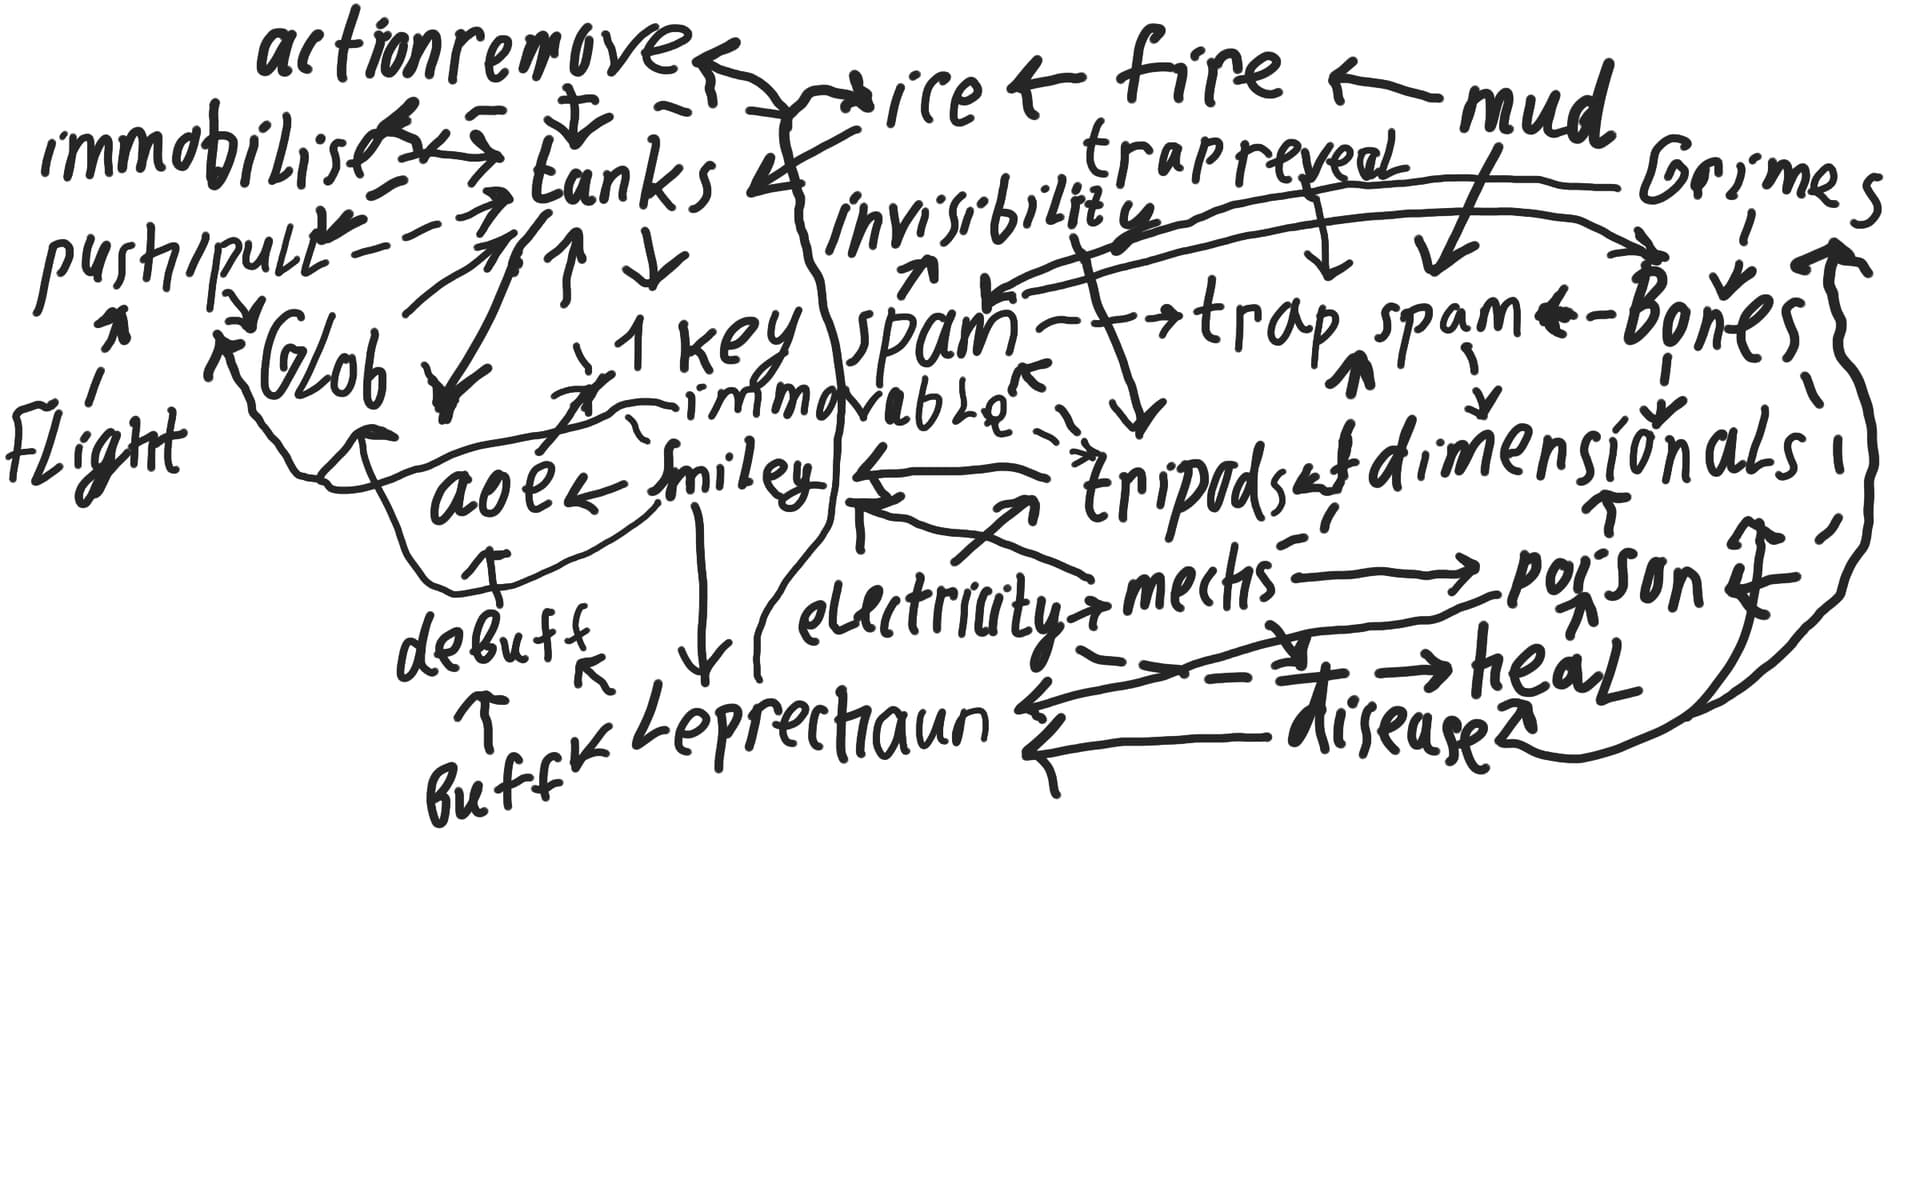 actionremove
ice
fire
mud
immobilise
tanks
trap reveal
Grimes
push/pull
invisibility
Glob
1 key spam
trap spam
Bones
flight
immovable
aoe
smiley
tripods
dimensionals
electricity
mechs
poison
debuff
heal
Leprechaun
disease
Buff